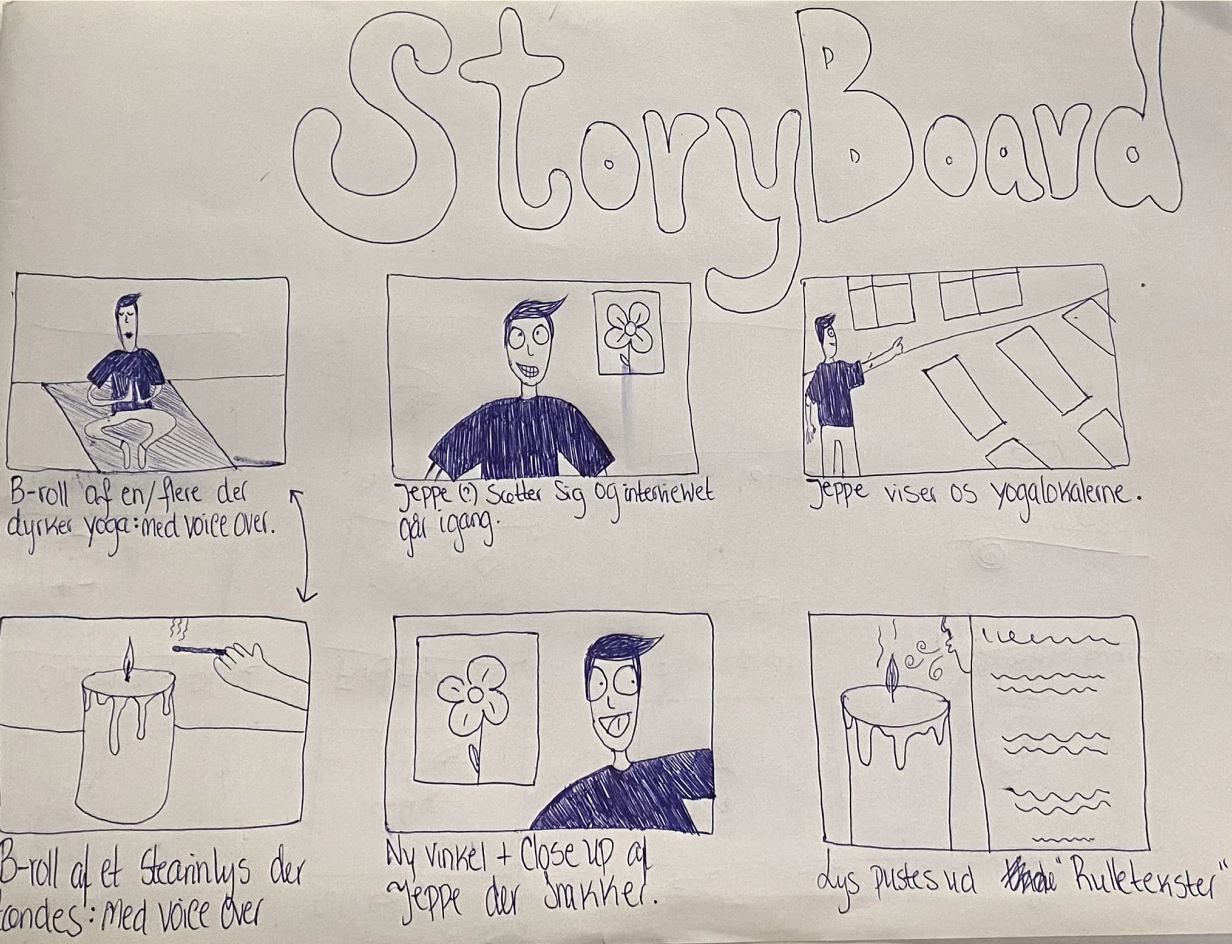 StoryBoard
B-roll af en/flere der
dyrker yoga: med voice over.
Jeppe (?) Sætter sig og interviewet
går igang.
Jeppe viser os yogalokalerne.
B-roll af et Stearinlys der
tændes: Med voice over
Ny vinkel + Close up af
Jeppe der Snakker.
Lys pustes ud "Rulletekster"